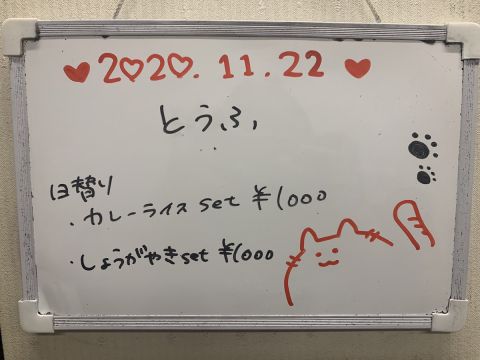 ♥2020.11.22♥
とうふ
日替り
・カレーライスset ¥1000
・しょうがやきset ¥1000